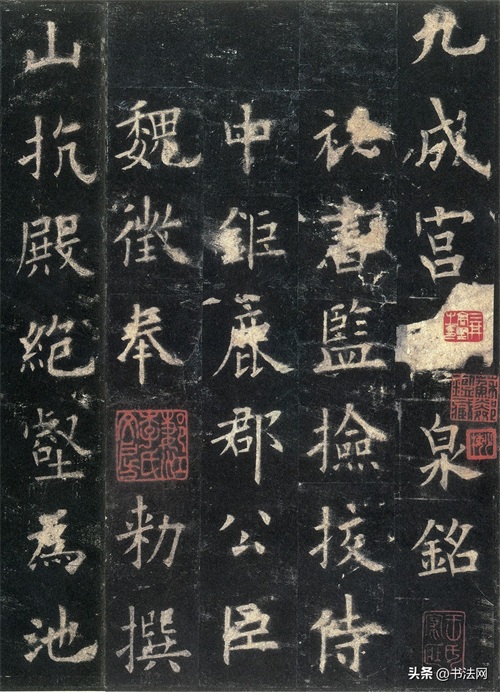 九成宮泉銘
祕書監撿挍侍
中鉅鹿郡公臣
魏徵奉勑撰
山抗殿絕壑為池
头条@书法网